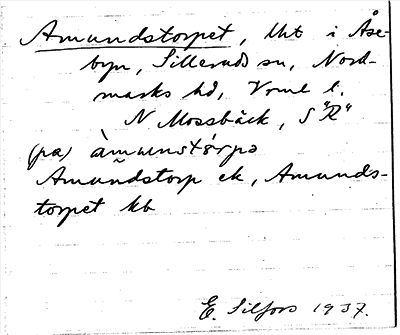 Amundstorpet, lht i Åse-
byn, Silleruds sn, Nord-
marks hd, Vrml l.
N Mossbäck, S "R"
(pa) àmɯnstɷ́rpə
Amundstorp ek, Amunds-
torpet kb
E. Silfors 1937.